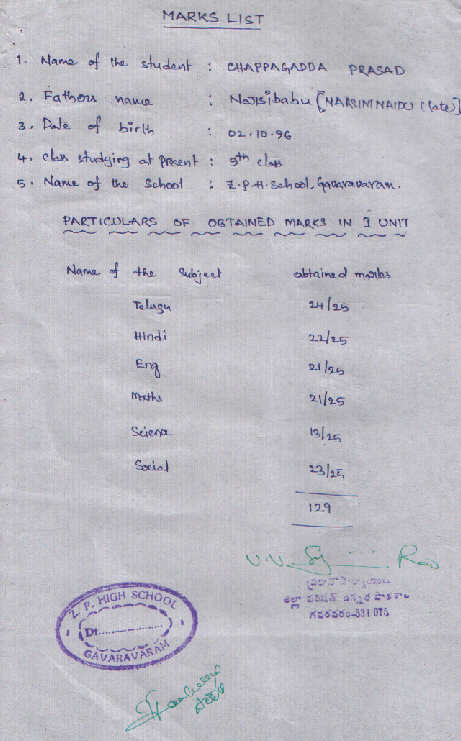 MARKS LIST
1. Name of the student : CHAPPAGADDA PRASAD
2. Fathers name : Najisibabu [NARSIMNAIDU (late)]
3. Date of birth : 02.10.96
4. class studying at present : 9th class
5. Name of the School : Z.P.H. School, Gavaravaram.
PARTICULARS OF OBTAINED MARKS IN I UNIT
Name of the Subject obtained marks
Telugu 24/25
Hindi 22/25
Eng 21/25
Maths 21/25
Science 18/25
Social 23/25
129
Rao
జిల్లా పరిషత్ ఉన్నత పాఠశాల
గవరవరం-531
Z. P. HIGH SCHOOL
Dt
GAVARAVARAM